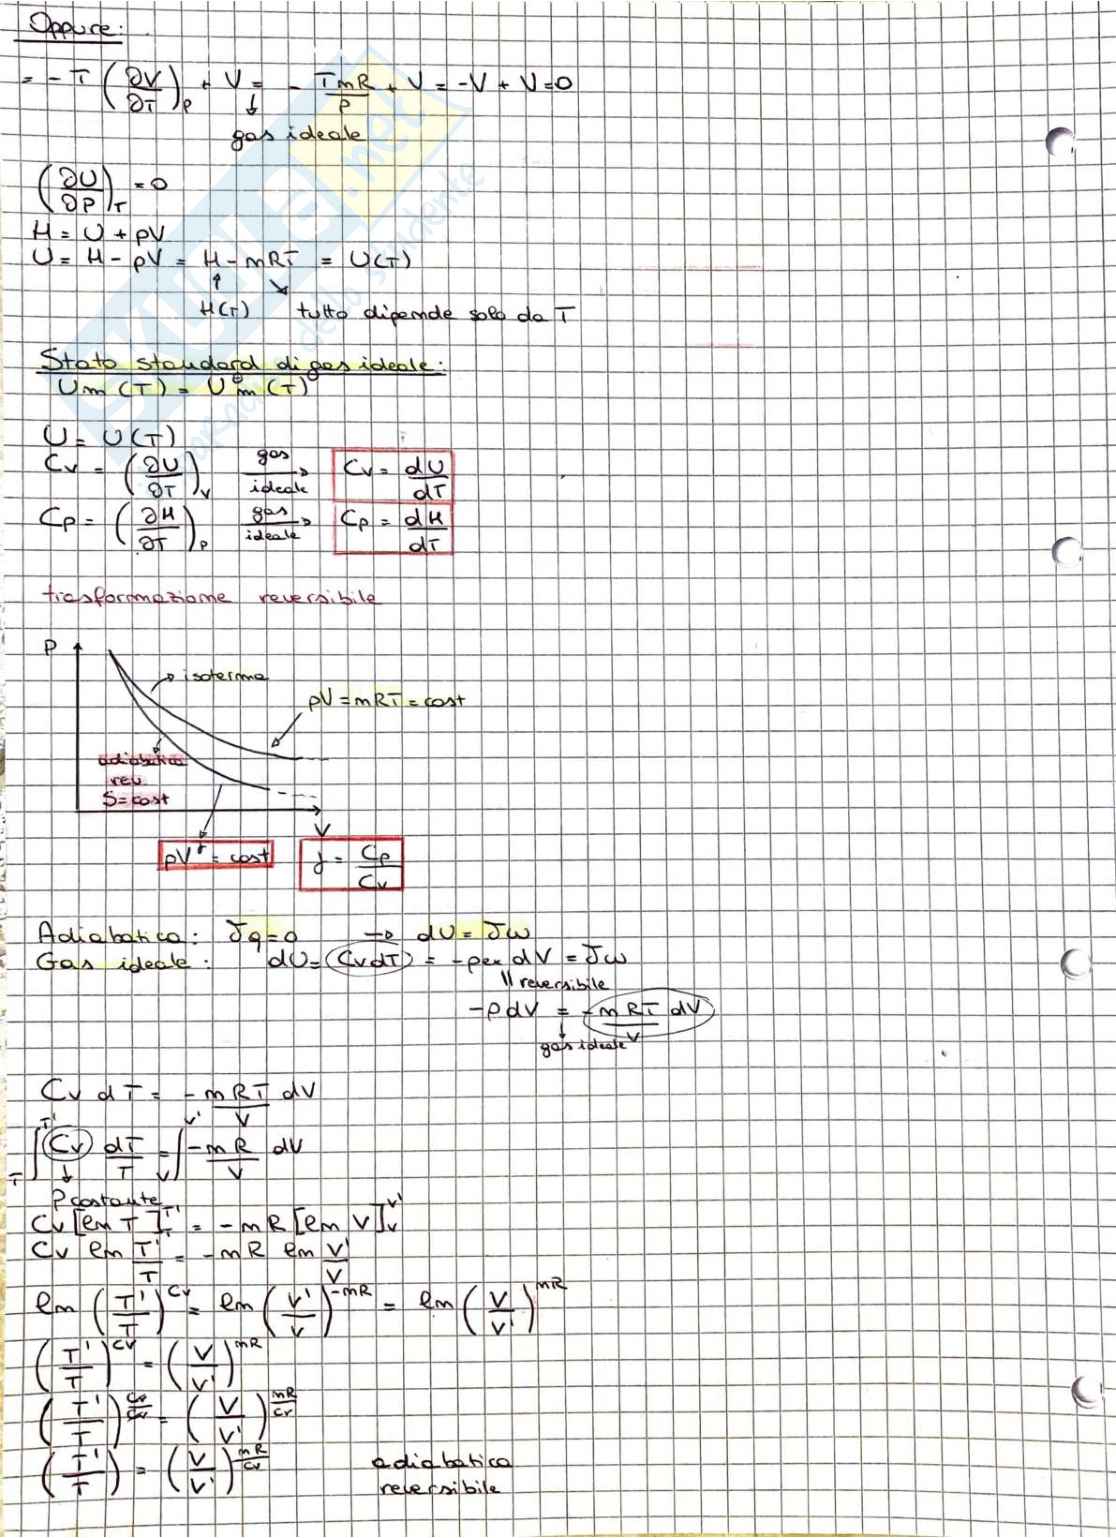 Oppure:
= - T (∂V/∂T)p + V = - TnR/P + V = -V + V = 0
gas ideale
(∂U/∂P)T = 0
H = U + pV
U = H - pV = H - nRT = U(T)
H(T) tutto dipende solo da T
Stato standard di gas ideale:
Um (T) = U°m (T)
U = U(T)
Cv = (∂U/∂T)v gas ideale → Cv = dU/dT
Cp = (∂H/∂T)p gas ideale → Cp = dH/dT
trasformazione reversibile
P
isoterma
pV = nRT = cost
adiabatica
rev.
S = cost
V
pV^γ = cost γ = Cp/Cv
Adiabatica: δq = 0 → dU = δw
Gas ideale: dU = CvdT = -pex dV = δw
|| reversibile
-PdV = -nRT/V dV
gas ideale
Cv dT = - nRT/V dV
∫T^T' Cv dT/T = ∫V^V' - nR/V dV
P costante
Cv [ln T]T^T' = - nR [ln V]V^V'
Cv ln T'/T = - nR ln V'/V
ln (T'/T)^Cv = ln (V'/V)^-nR = ln (V/V')^nR
(T'/T)^Cv = (V/V')^nR
(T'/T)^Cv/Cv = (V/V')^nR/Cv
(T'/T) = (V/V')^nR/Cv adiabatica
reversibile
SKUOLA.net